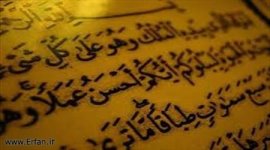 بِيَدِهِ الْمُلْكُ وَهُوَ عَلَىٰ كُلِّ شَىْءٍ
لِيَبْلُوَكُمْ أَيُّكُمْ أَحْسَنُ عَمَلًا
سَبْعَ سَمَٰوَٰتٍ طِبَاقًا مَّا تَرَىٰ
www.Erfan.ir